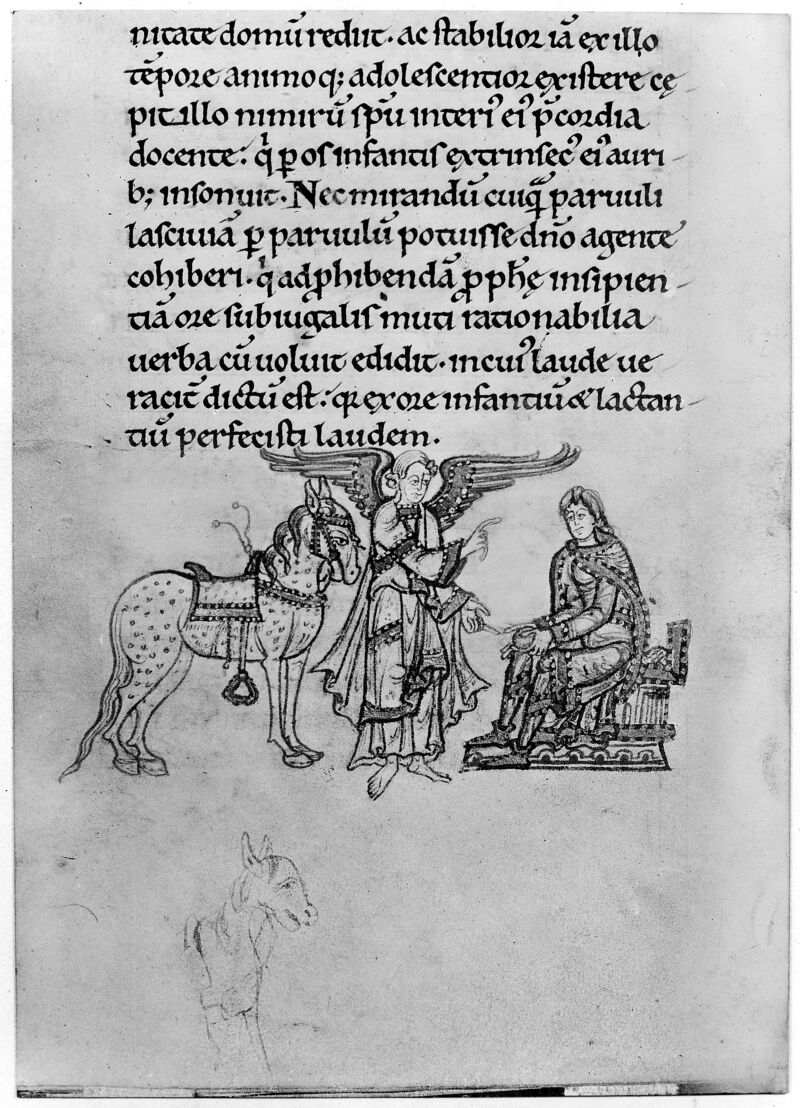 nitate domū rediit. ac stabilior iā ex illo
tēpore animoq; adolescentior existere cę
pit. illo nimirū sp̄u interi᾽ ei᾽ p̄cordia
docente: qͥ ꝑ os infantis extrinsec᾽ ei᾽ auri
b; insonuit. Nec mirandū cuiqᷓ paruuli
lasciuiā ꝑ paruulū potuisse dn̄o agente
cohiberi. qͥ ad ꝓhibendā ꝓph̄ę insipien
tiā ore subiugalis muti rationabilia
uerba cū uoluit edidit. in cui᾽ laude ue
racit̄ dictū est: qꝛ ex ore infantiū & lactan
tiū perfecisti laudem.